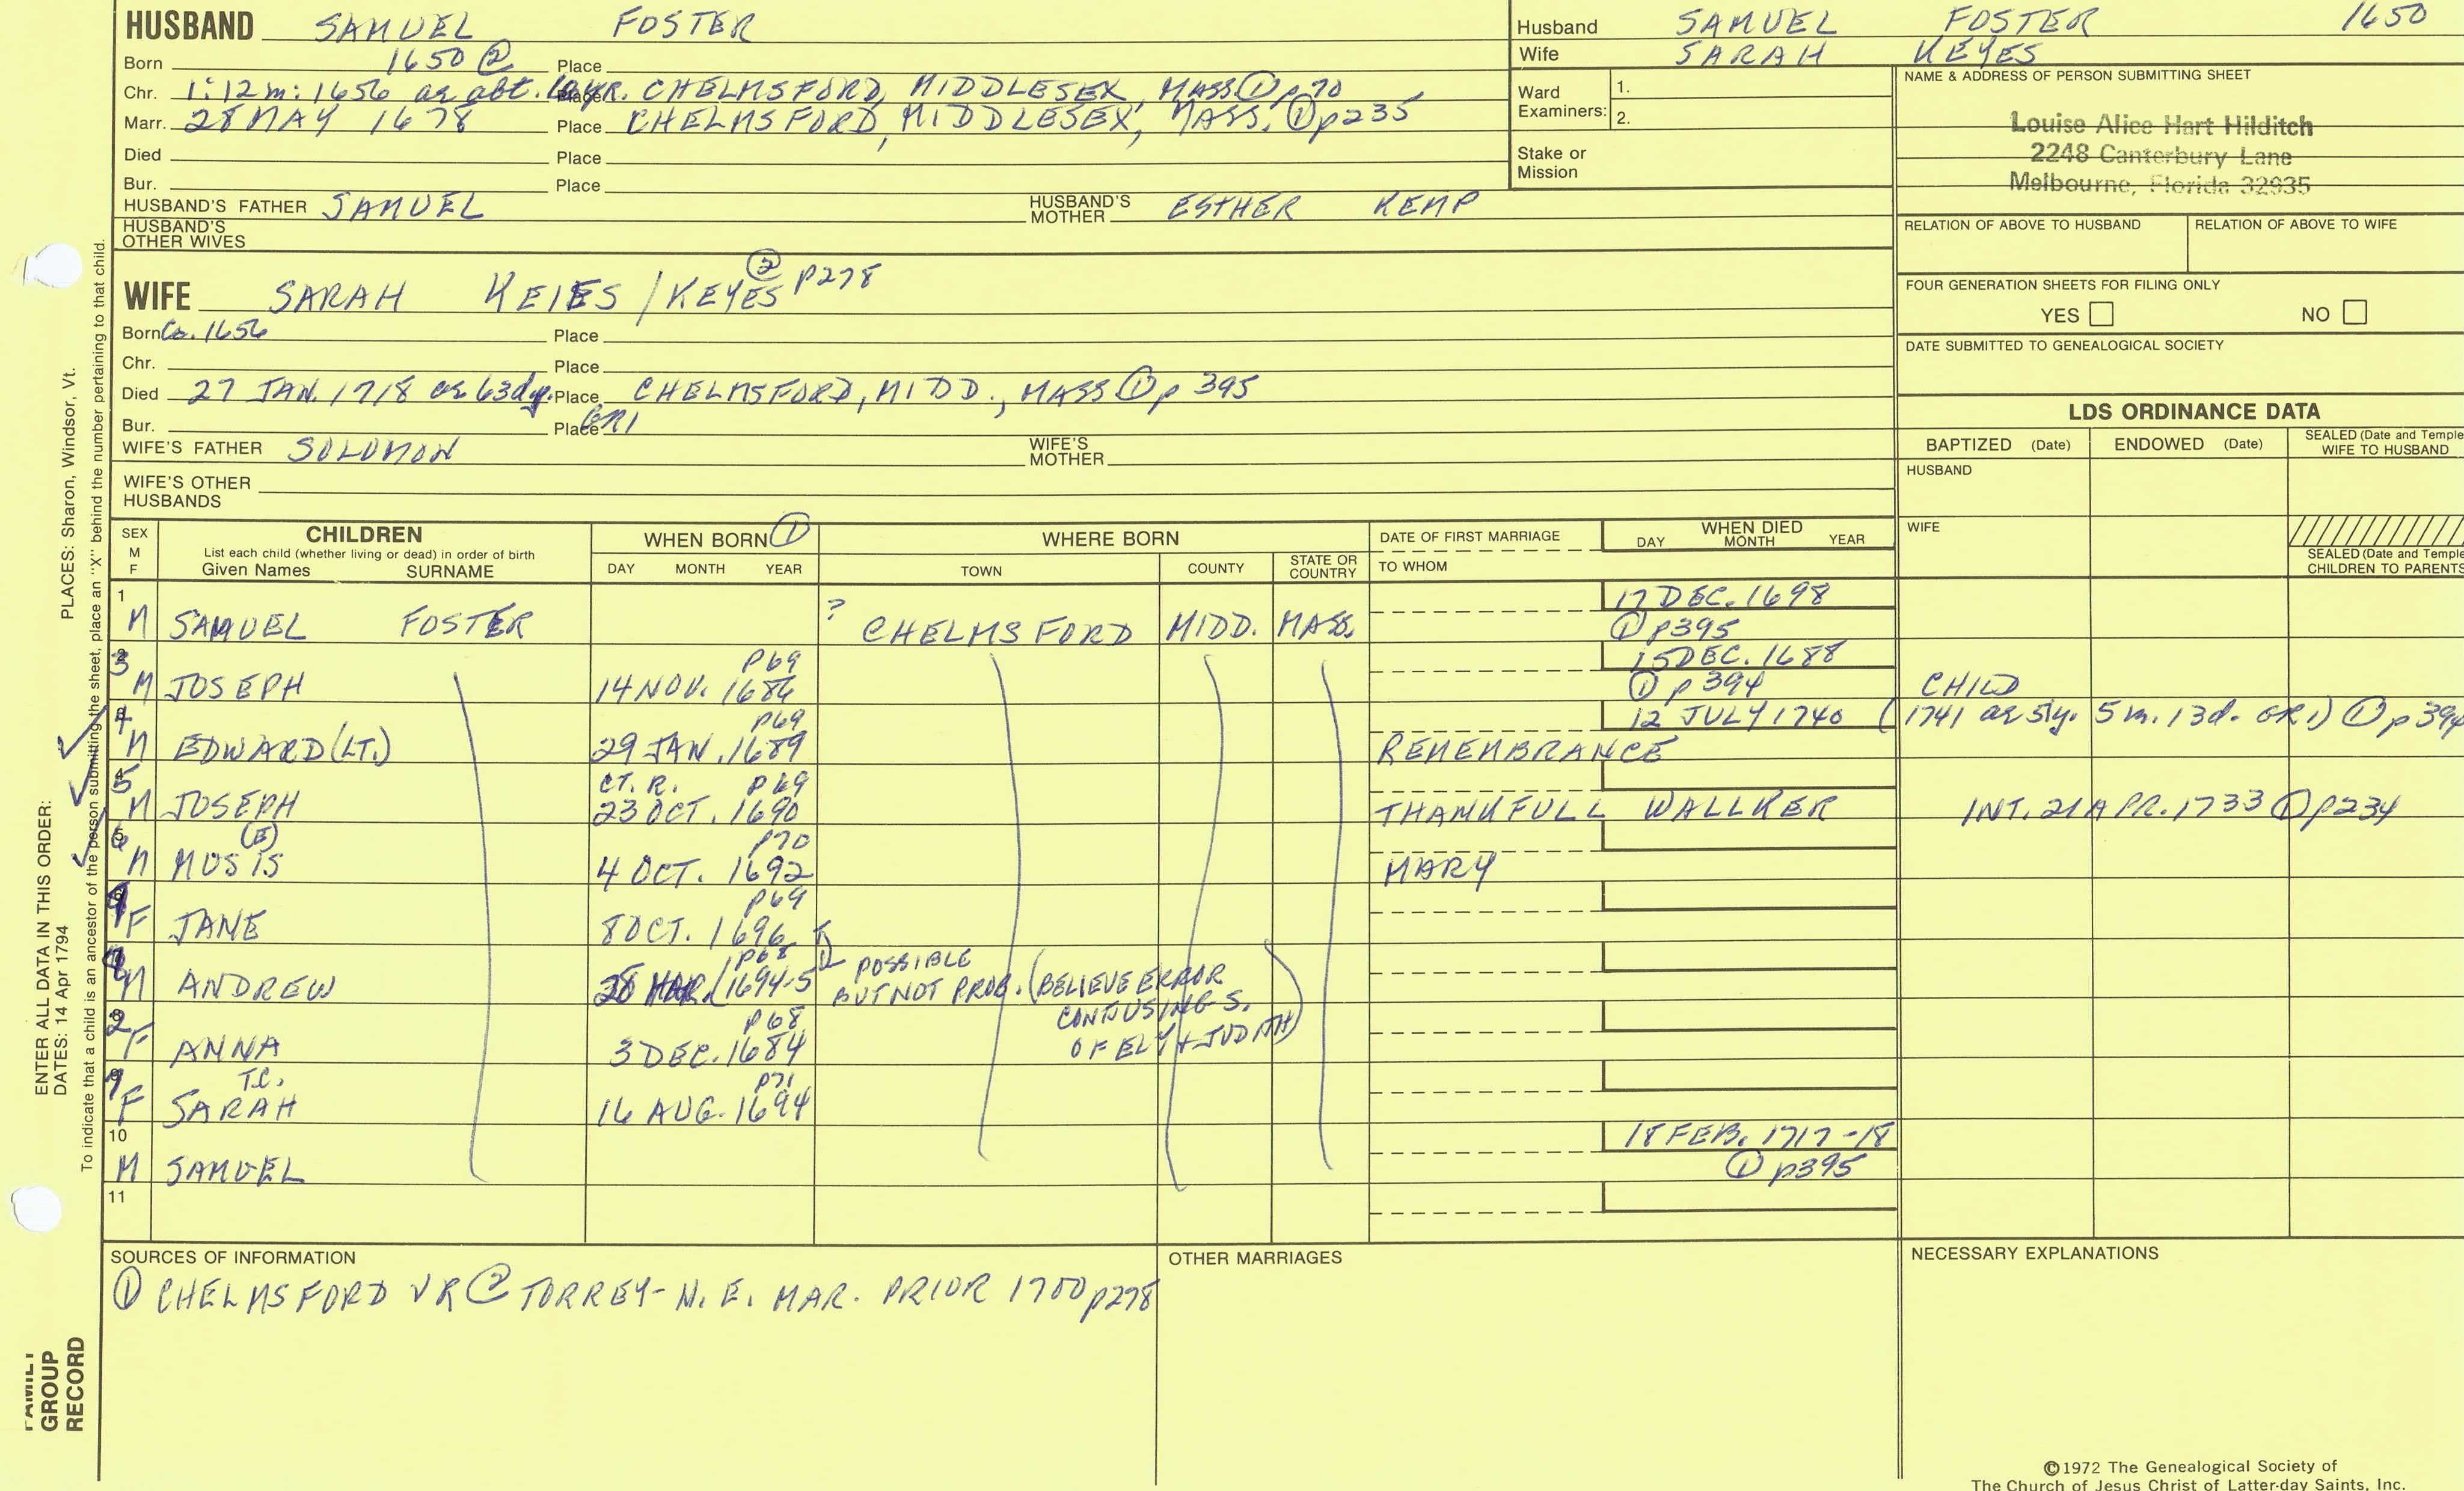 HUSBAND SAMUEL FOSTER
Born 1650 ② Place
Chr. 1:12m:1656 ae abt. yr. Place CHELMSFORD, MIDDLESEX, MASS ① p70
Marr. 28 MAY 1678 Place CHELMSFORD, MIDDLESEX, MASS. ① p235
Died Place
Bur. Place
HUSBAND'S FATHER SAMUEL HUSBAND'S MOTHER ESTHER KEMP
HUSBAND'S OTHER WIVES
Husband SAMUEL FOSTER 1650
Wife SARAH KEYES
Ward Examiners: 1.
2.
Stake or Mission
NAME & ADDRESS OF PERSON SUBMITTING SHEET
Louise Alice Hart Hilditch
2248 Canterbury Lane
Melbourne, Florida 32935
RELATION OF ABOVE TO HUSBAND RELATION OF ABOVE TO WIFE
FOUR GENERATION SHEETS FOR FILING ONLY
YES NO
DATE SUBMITTED TO GENEALOGICAL SOCIETY
WIFE SARAH KEIES / KEYES ② p278
Born Ca. 1656 Place
Chr. Place
Died 27 JAN. 1718 ae 63dy. Place CHELMSFORD, MIDD., MASS ① p 395
Bur. Place GR1
WIFE'S FATHER SOLOMON WIFE'S MOTHER
WIFE'S OTHER HUSBANDS
LDS ORDINANCE DATA
BAPTIZED (Date) ENDOWED (Date) SEALED (Date and Temple WIFE TO HUSBAND
HUSBAND
WIFE
SEALED (Date and Temple CHILDREN TO PARENTS
SEX M F CHILDREN WHEN BORN ① WHERE BORN DATE OF FIRST MARRIAGE WHEN DIED
List each child (whether living or dead) in order of birth
Given Names SURNAME DAY MONTH YEAR TOWN COUNTY STATE OR COUNTRY TO WHOM DAY MONTH YEAR
1 17 DEC. 1698
M SAMUEL FOSTER ? CHELMSFORD MIDD. MASS. ① p395
3 p69 15 DEC. 1688
M JOSEPH 14 NOV. 1686 ① p 394 CHILD
4 p69 12 JULY 1740 (1741 ae 51y. 5m. 13d. GR1) ① p394
M EDWARD (LT.) 29 JAN. 1689 REMEMBRANCE
5 CT. R. p69
M JOSEPH 23 OCT. 1690 THANKFULL WALLKER INT. 21 APR. 1733 ① p234
6 (E) p70
M MOSIS 4 OCT. 1692 MARY
p69
F JANE 8 OCT. 1696
p68 POSSIBLE
M ANDREW 28 MAR. 1694-5 BUT NOT PROB. (BELIEVE ERROR
CONFUSING S.
2 p68
F ANNA 3 DEC. 1684 OF ELY + JUDITH)
7 T.C. p71
F SARAH 16 AUG. 1694
10 18 FEB. 1717-18
M SAMUEL ① p395
11
SOURCES OF INFORMATION OTHER MARRIAGES NECESSARY EXPLANATIONS
① CHELMSFORD VR ② TORREY- N. E. MAR. PRIOR 1700 p278
©1972 The Genealogical Society of
The Church of Jesus Christ of Latter-day Saints, Inc.
ENTER ALL DATA IN THIS ORDER:
DATES: 14 Apr 1794 PLACES: Sharon, Windsor, Vt.
To indicate that a child is an ancestor of the person submitting the sheet, place an "X" behind the number pertaining to that child.
FAMILY
GROUP
RECORD